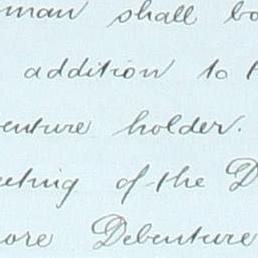 man shall
addition to
enture holder.
eeting of the D
ore Debenture